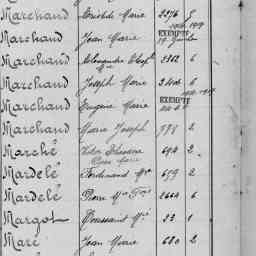 Marchand Aristide Marie 2376 8
Marchand Jean Marie EXEMPTÉ
Marchand Alexandre 2882 6
Marchand Joseph Marie 2406 6
Marchand Eugène Marie EXEMPTÉ
Marchand Marie Joseph 778 2
Marché Victor 694 2
Mardelé Ferdinand Mie 659 2
Mardelé Pierre Mie 2664 6
Margot Toussaint Mie 23 1
Maré Jean Marie 680 2